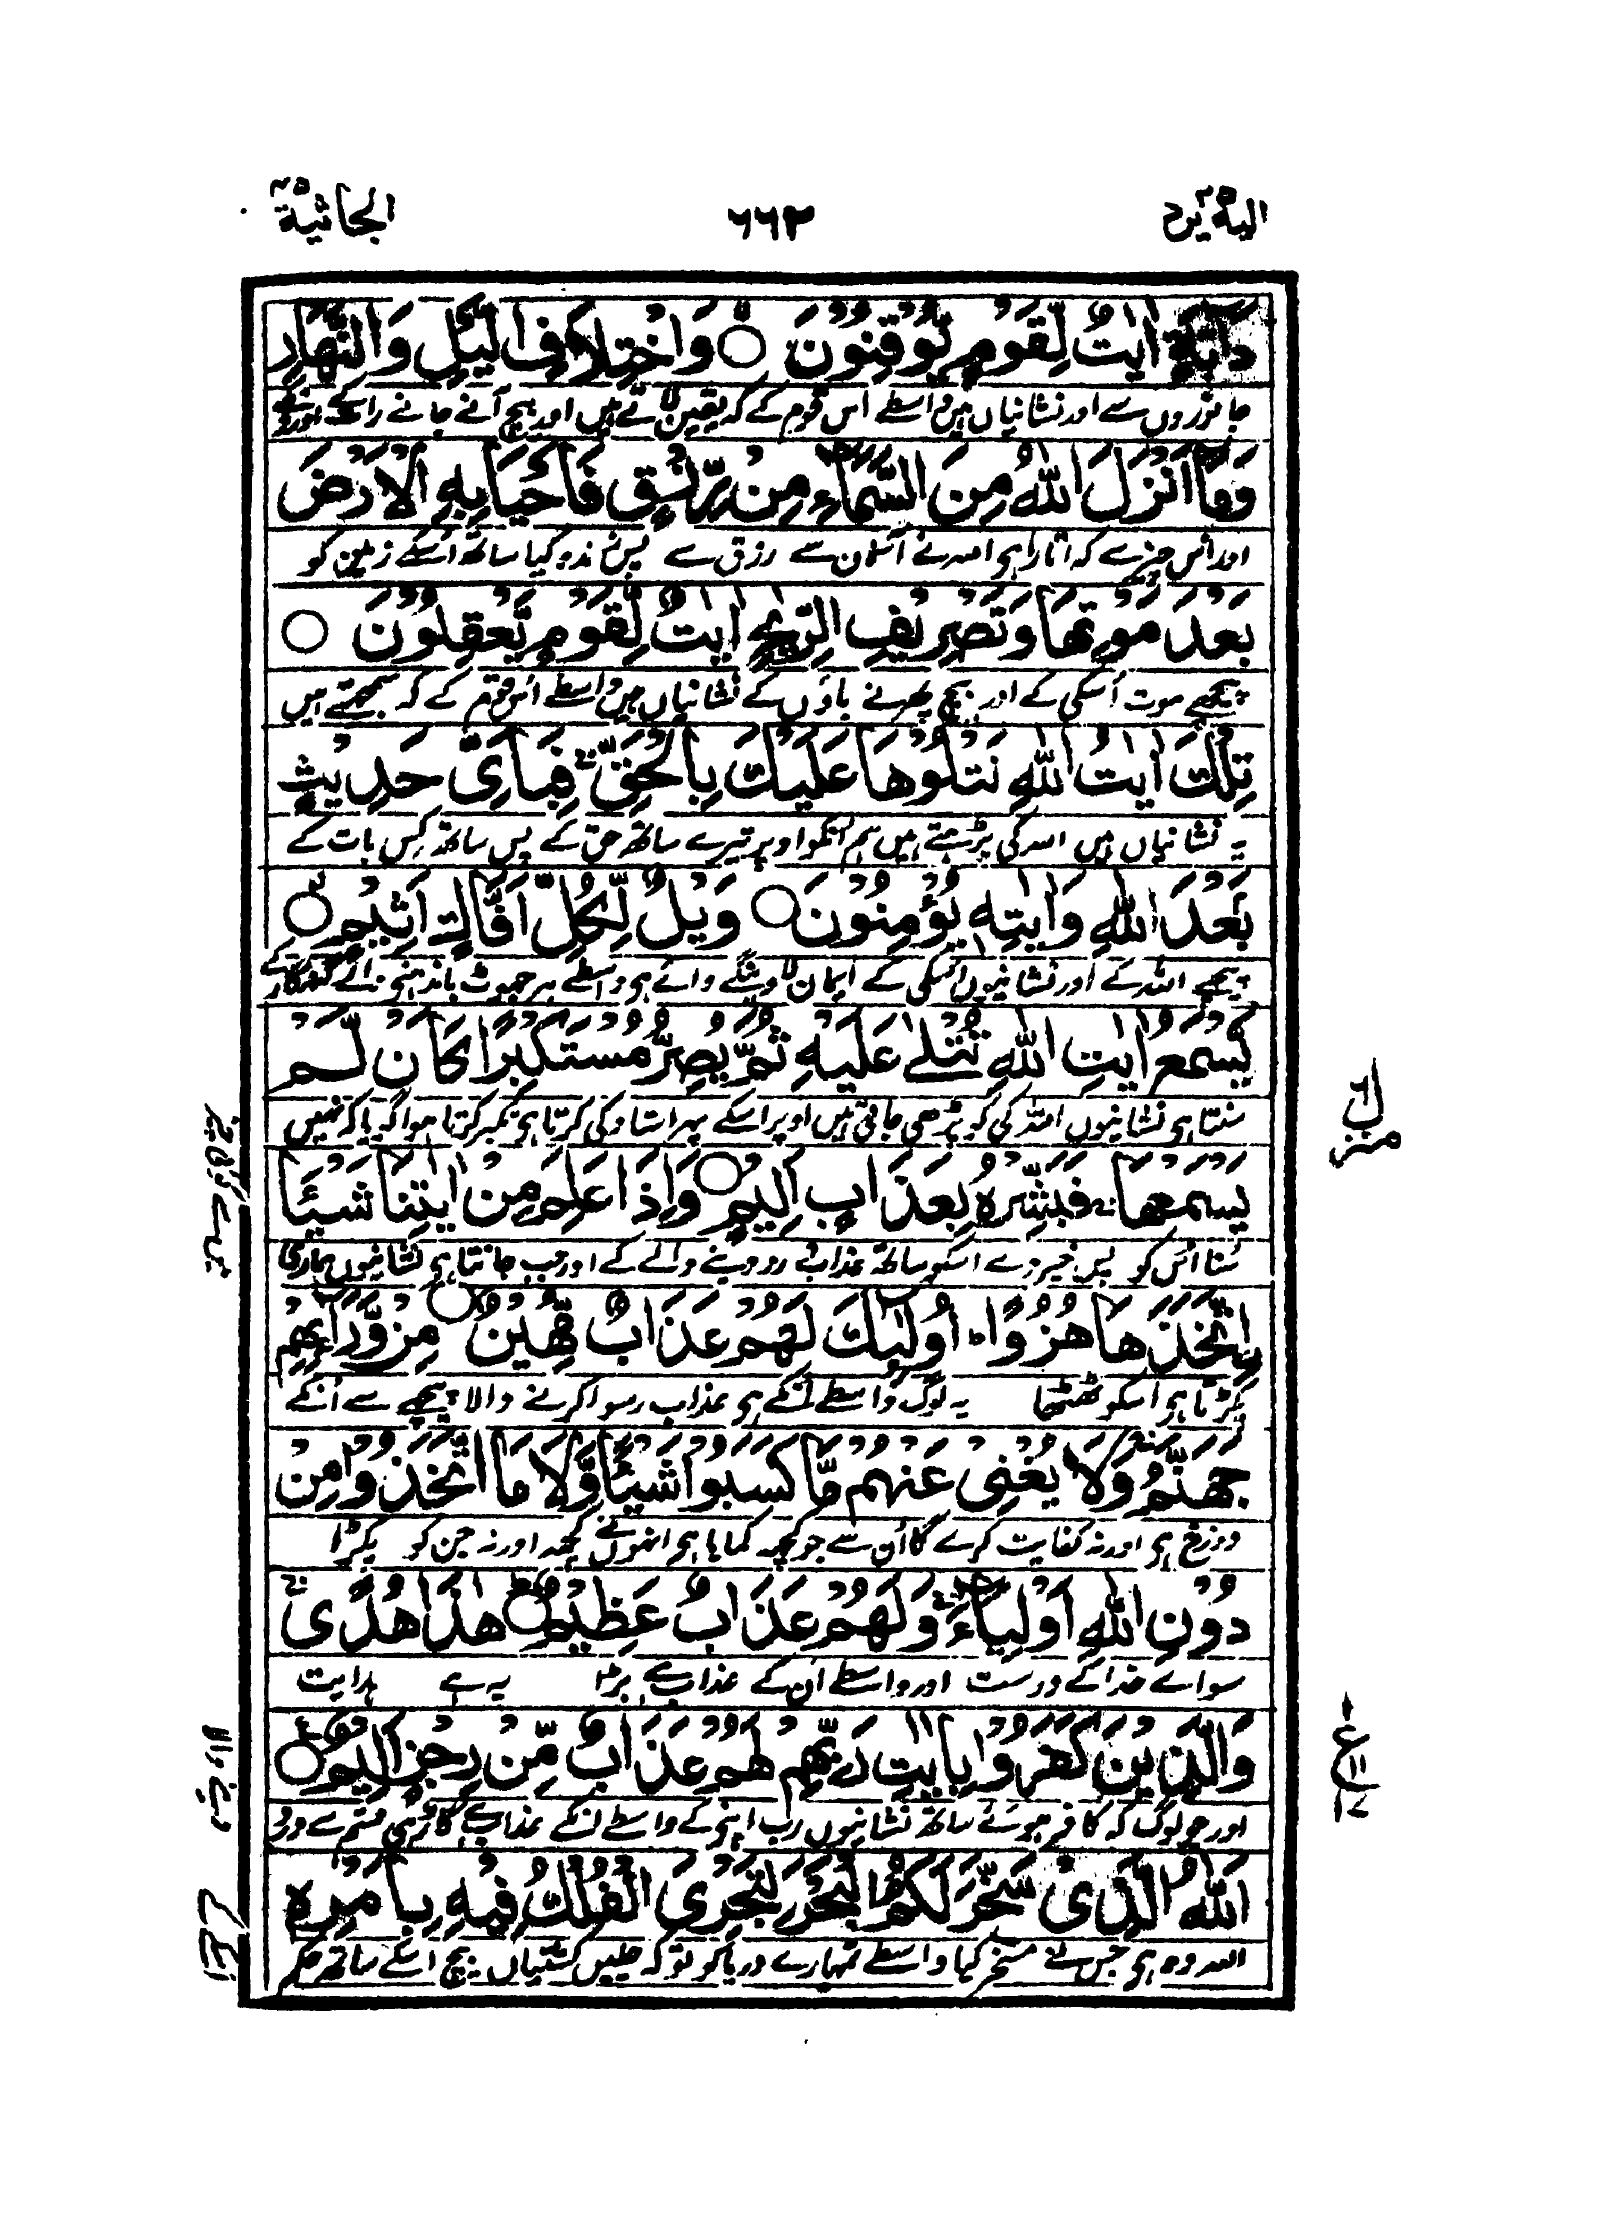 الیہ یرد ٢٥
٦٦٢
الجاثیة ٤٥
دَآبَّةٍ اٰیٰتٌ لِّقَوْمٍ یُّوْقِنُوْنَ ۙ○ وَاخْتِلَافِ الَّیْلِ وَالنَّهَارِ
جانوروں سے اور نشانیاں ہیں واسطے اس قوم کے کہ یقین لاتے ہیں اور بیچ آنے جانے رات کے اور دن کے
وَمَآ اَنْزَلَ اللّٰهُ مِنَ السَّمَآءِ مِنْ رِّزْقٍ فَاَحْیَا بِهِ الْاَرْضَ
اور اُس چیز سے کہ اتارا ہی اللہ نے آسمان سے رزق سے پس زندہ کیا ساتھ اُسکے زمین کو
بَعْدَ مَوْتِهَا وَتَصْرِیْفِ الرِّیٰحِ اٰیٰتٌ لِّقَوْمٍ یَّعْقِلُوْنَ ○
پیچھے موت اُسکی کے اور بیچ پھرنے باؤں کے نشانیاں ہیں واسطے اُس قوم کے کہ سمجھتے ہیں
تِلْكَ اٰیٰتُ اللّٰهِ نَتْلُوْهَا عَلَیْكَ بِالْحَقِّ ۚ فَبِاَیِّ حَدِیْثٍۭ
یہ نشانیاں ہیں اللہ کی پڑھتے ہیں ہم انکو اوپر تیرے ساتھ حق کے پس ساتھ کس بات کے
بَعْدَ اللّٰهِ وَاٰیٰتِهٖ یُؤْمِنُوْنَ ○ وَیْلٌ لِّكُلِّ اَفَّاكٍ اَثِیْمٍ ۙ○
پیچھے اللہ کے اور نشانیوں اُسکی کے ایمان لاوینگے وائے ہی واسطے ہر جھوٹ باندھنے والے گنہگار کے
یَّسْمَعُ اٰیٰتِ اللّٰهِ تُتْلٰى عَلَیْهِ ثُمَّ یُصِرُّ مُسْتَكْبِرًا كَاَنْ لَّمْ
سنتا ہی نشانیوں اللہ کی کو پڑھی جاتی ہیں اوپر اسکے پہر استادگی کرتا ہی تکبر کرتا ہوا گویا کہ نہیں
یَسْمَعْهَا ۚ فَبَشِّرْهُ بِعَذَابٍ اَلِیْمٍ ○ وَاِذَا عَلِمَ مِنْ اٰیٰتِنَا شَیْئَا
سُنا اُس کو پس خبر دے اسکو ساتھ عذاب درد دینے والے کے اور جب جانتا ہی نشانیوں ہماری
ِ۟اتَّخَذَهَا هُزُوًا ؕ اُولٰٓئِكَ لَهُمْ عَذَابٌ مُّهِیْنٌ ○ مِنْ وَّرَآئِهِمْ
پکڑتا ہی اُسکو ٹھٹھا یہ لوگ واسطے اُنکے ہی عذاب رسوا کرنے والا پیچھے سے اُنکے
جَهَنَّمُ وَلَا یُغْنِیْ عَنْهُمْ مَّا كَسَبُوْا شَیْئًا وَّلَا مَا اتَّخَذُوْا مِنْ
دوزخ ہی اور نہ کفایت کرے گا اُن سے جو کچھہ کمایا ہی انہوں نے کچھہ اور نہ جن کو پکڑا
دُوْنِ اللّٰهِ اَوْلِیَآءَ ۚ وَلَهُمْ عَذَابٌ عَظِیْمٌ ○ هٰذَا هُدًى ۚ
سواے خدا کے دوست اور واسطے اُن کے عذاب ہے بڑا یہ ہے ہدایت
وَالَّذِیْنَ كَفَرُوْا بِاٰیٰتِ رَبِّهِمْ لَهُمْ عَذَابٌ مِّنْ رِّجْزٍ اَلِیْمٌ ○
اور جو لوگ کہ کافر ہوئے ساتھ نشانیوں رب اپنے کے واسطے اُنکے عذاب ہے گاڑھی قسم سے درد
اَللّٰهُ الَّذِیْ سَخَّرَ لَكُمُ الْبَحْرَ لِتَجْرِیَ الْفُلْكُ فِیْهِ بِاَمْرِهٖ
اللہ وہ ہی جس نے مسخر کیا واسطے تمہارے دریا کو تو کہ چلیں کشتیاں بیچ اسکے ساتھ حکم
منزل ٦
دینے والا
اسکے